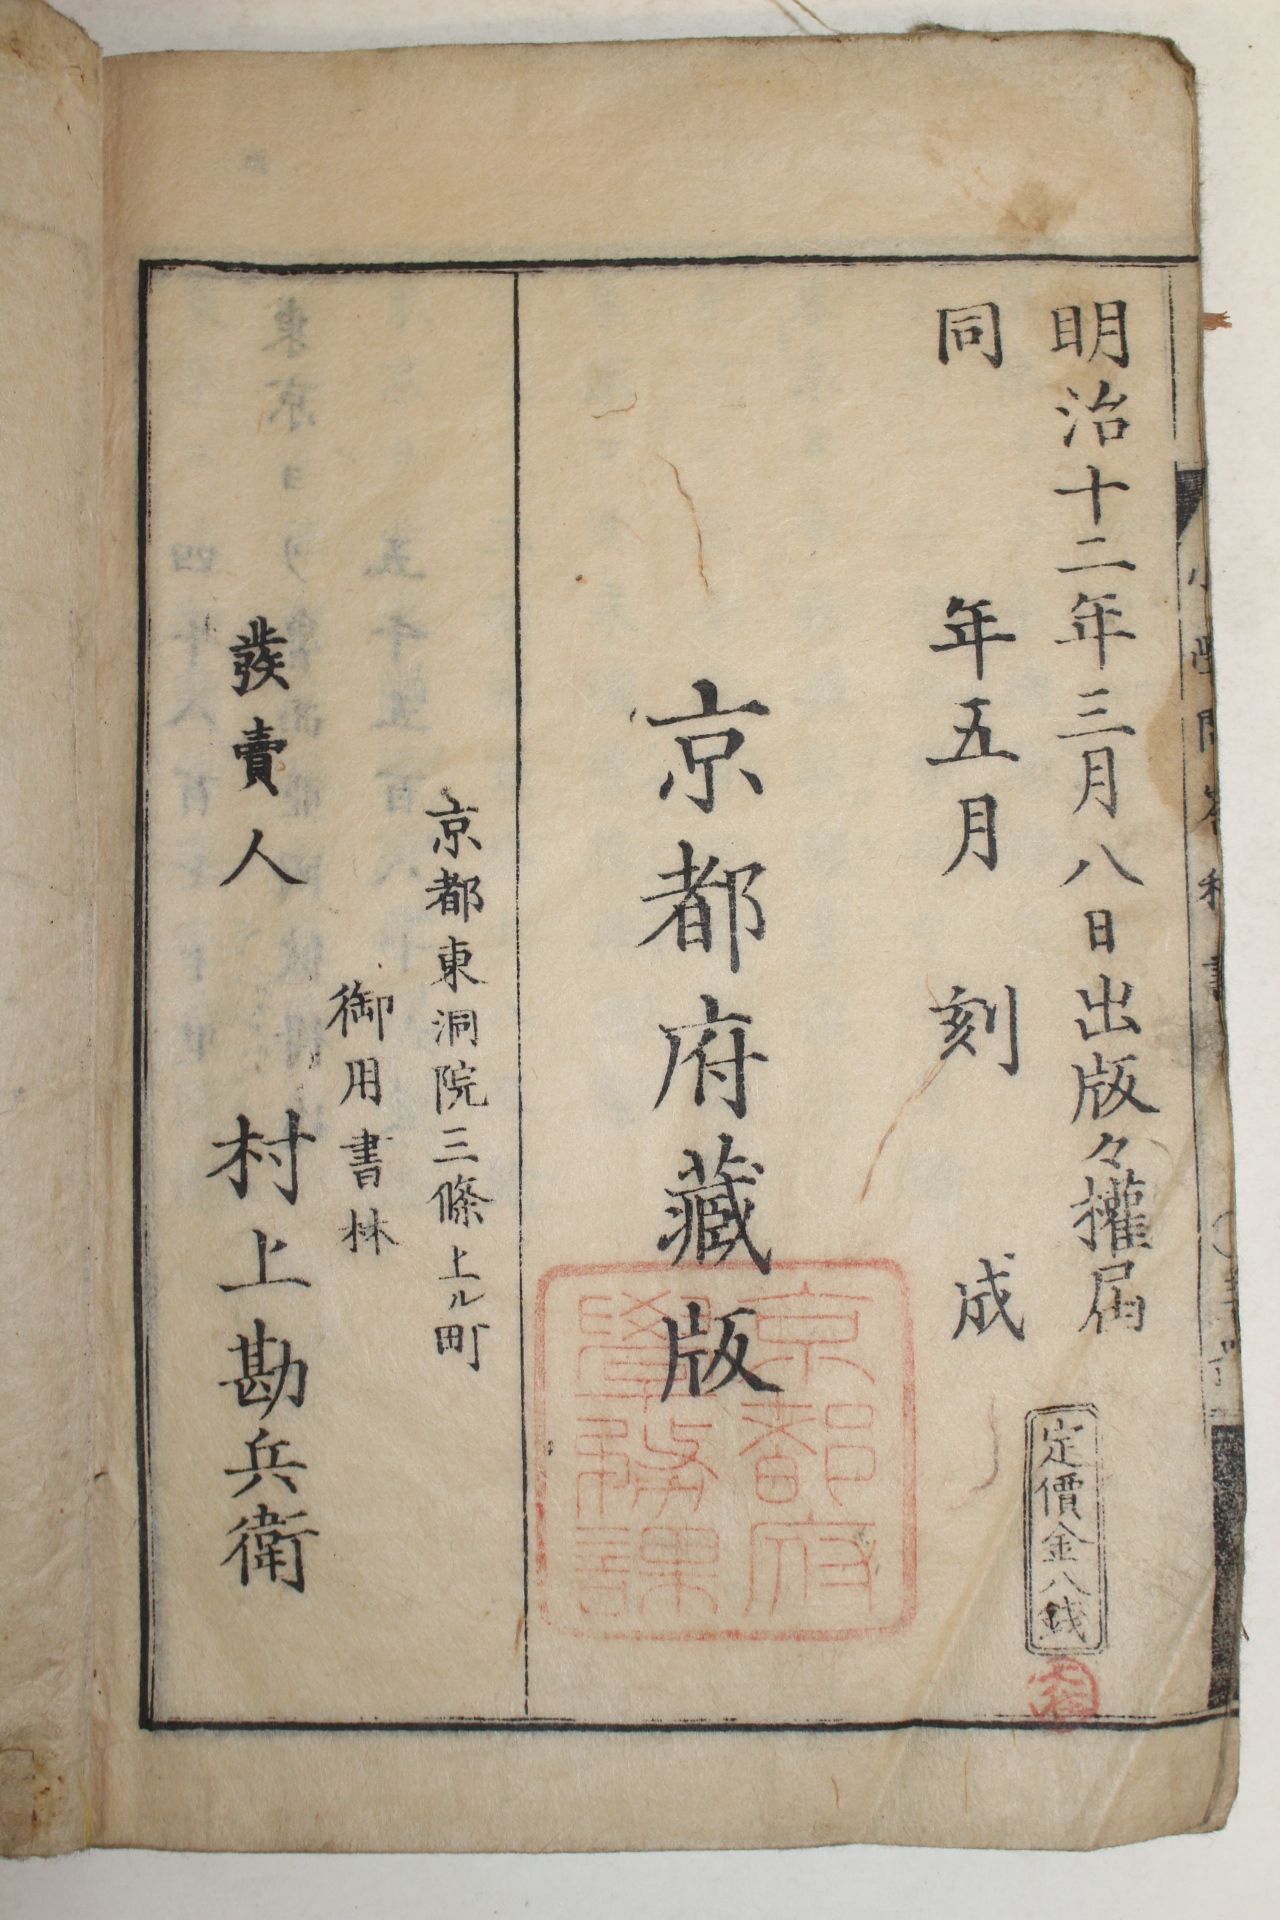 明治十二年三月八日出版々權届
同　年五月　刻　成
定價金八錢
京都府藏版
京都府
學務課
京都東洞院三條上ル町
御用書林
發賣人　村上勘兵衛